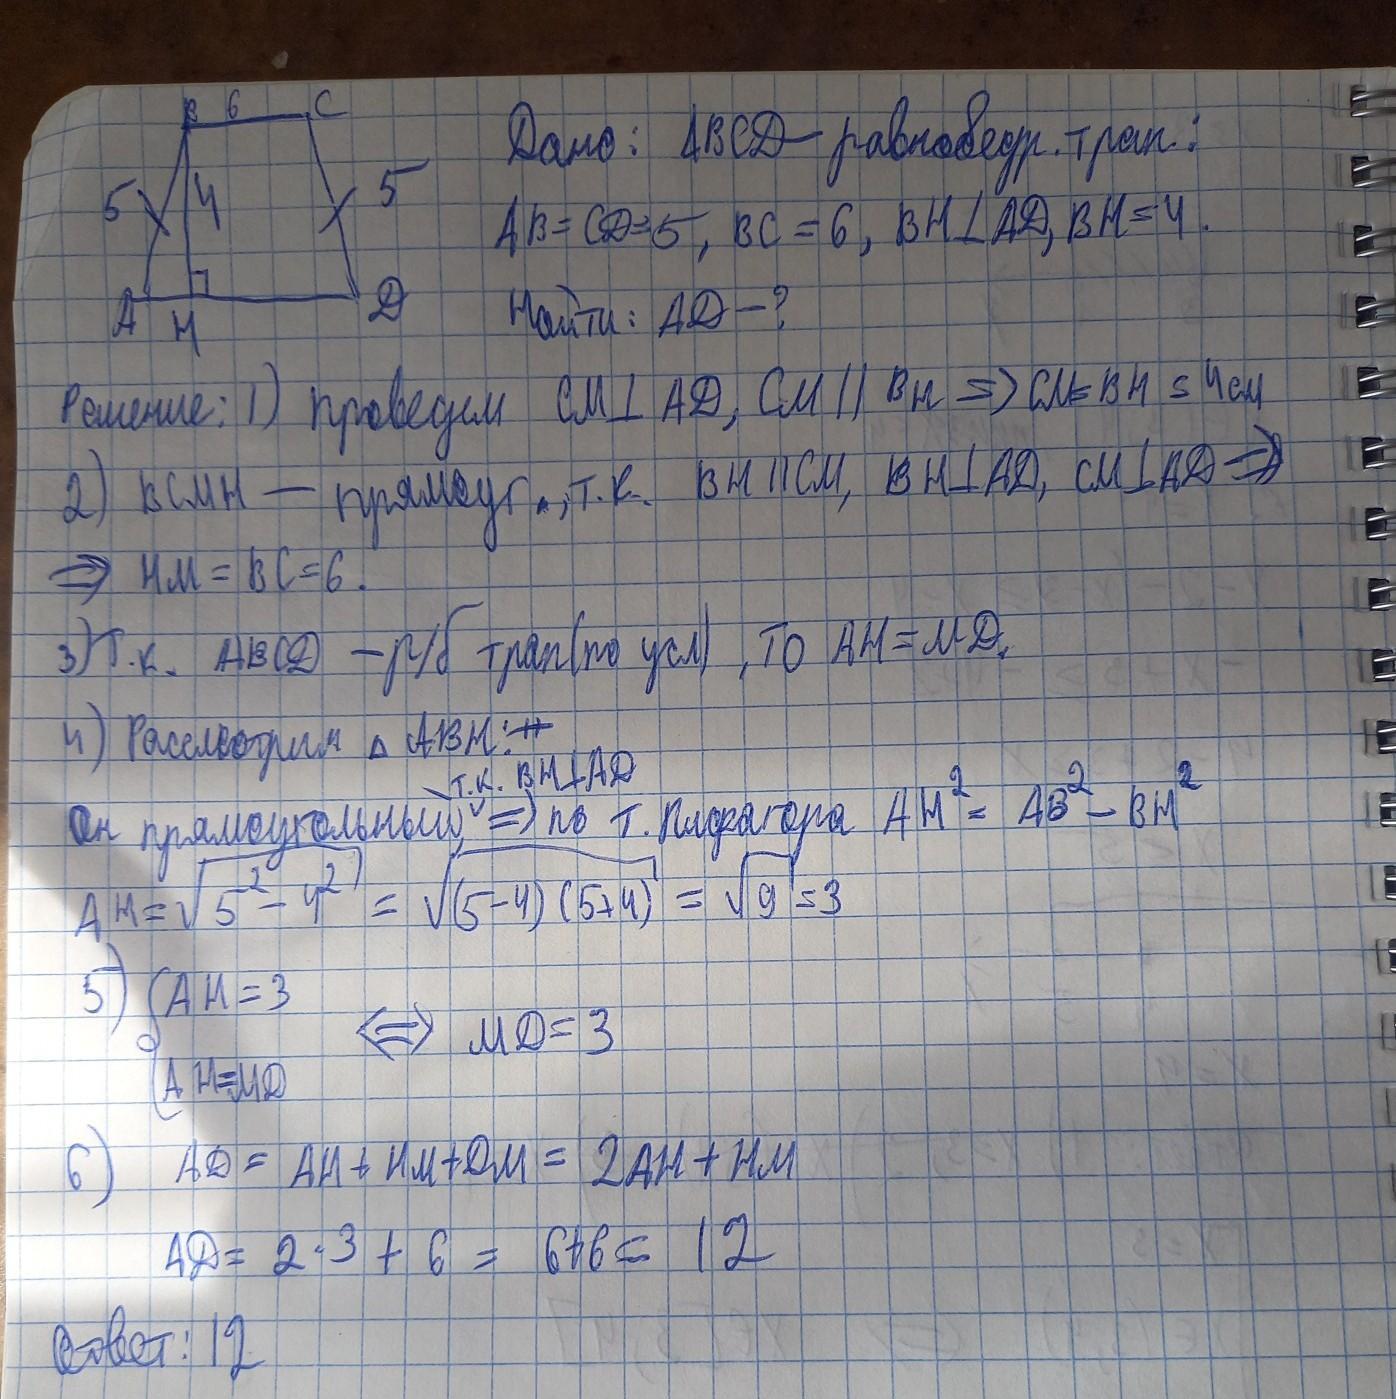 B 6 C
5 4 5
A H D
Дано: ABCD – равнобедр. трап.:
AB = CD = 5, BC = 6, BH ⊥ AD, BH = 4.
Найти: AD – ?
Решение: 1) проведем CM ⊥ AD, CM || BH => CM = BH = 4 см
2) BCMH – прямоуг., т.к. BH || CM, BH ⊥ AD, CM ⊥ AD =>
=> HM = BC = 6.
3) Т.к. ABCD – р/б трап (по усл), то AH = MD.
4) Рассмотрим △ ABH:
т.к. BH ⊥ AD
Он прямоугольный, => по т. Пифагора AH² = AB² – BH²
AH = √(5² – 4²) = √((5-4)(5+4)) = √9 = 3
5) { AH = 3
<=> MD = 3
AH = MD
6) AD = AH + HM + DM = 2AH + HM
AD = 2·3 + 6 = 6+6 = 12
Ответ: 12